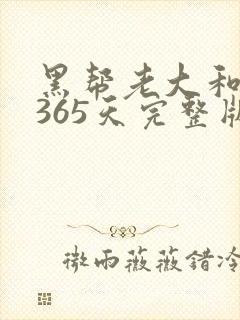 黑帮老大和
365天完整版
微雨薇薇错冷